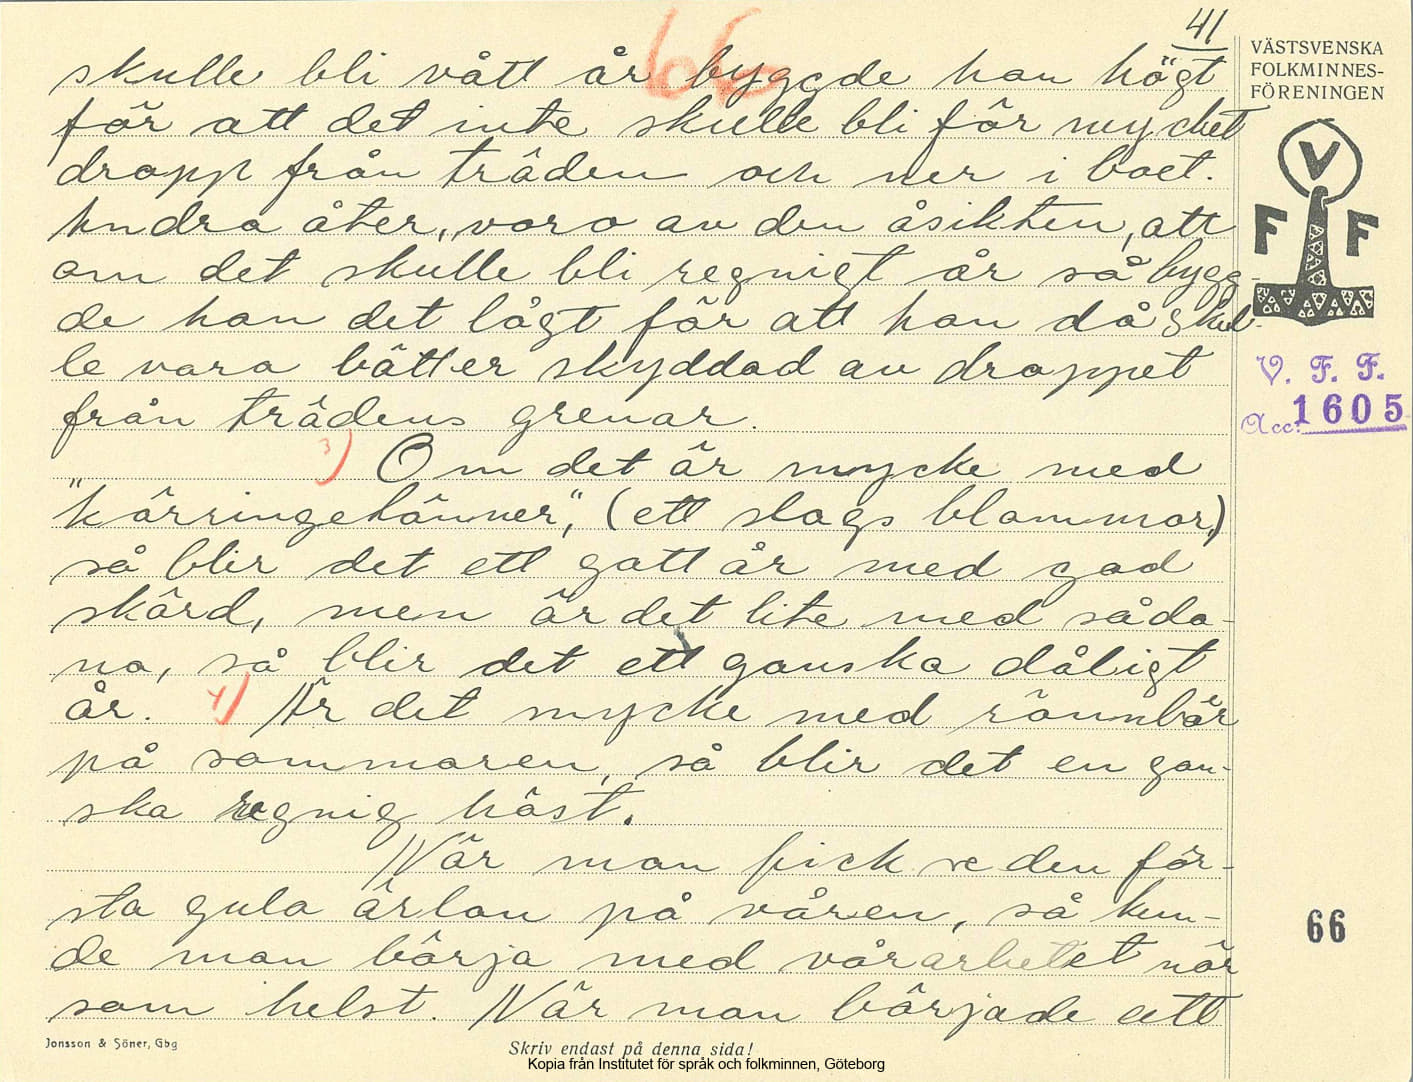 41
66
VÄSTSVENSKA
FOLKMINNES-
FÖRENINGEN
skulle bli vått år byggde han högt
för att det inte skulle bli för mycket
dropp från träden och ner i boet.
Andra åter, voro av den åsikten, att
om det skulle bli regnigt år så bygg-
de han det lågt för att han då skul-
le vara bätter skyddad av droppet
från trädens grenar.
3) Om det är mycke med
"kärringetänner", (ett slags blommor)
så blir det ett gott år med god
skörd, men är det lite med såda-
na, så blir det ett ganska dåligt
år. 4) Är det mycke med rönnbär
på sommaren, så blir det en gan-
ska regnig höst.
När man fick se den för-
sta gula ärlan på våren, så kun-
de man börja med vårarbetet när
som helst. När man började att
V F F
V. F. F.
Acc: 1605
66
Jonsson & Söner, Gbg
Skriv endast på denna sida!
Kopia från Institutet för språk och folkminnen, Göteborg